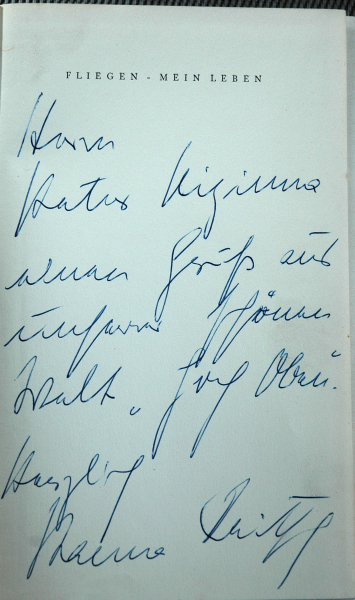 FLIEGEN - MEIN LEBEN
Herrn
Pater
einen Gruß aus
unserer schönen
Welt „hoch Oben“.
Herzlich
Hanna Reitsch